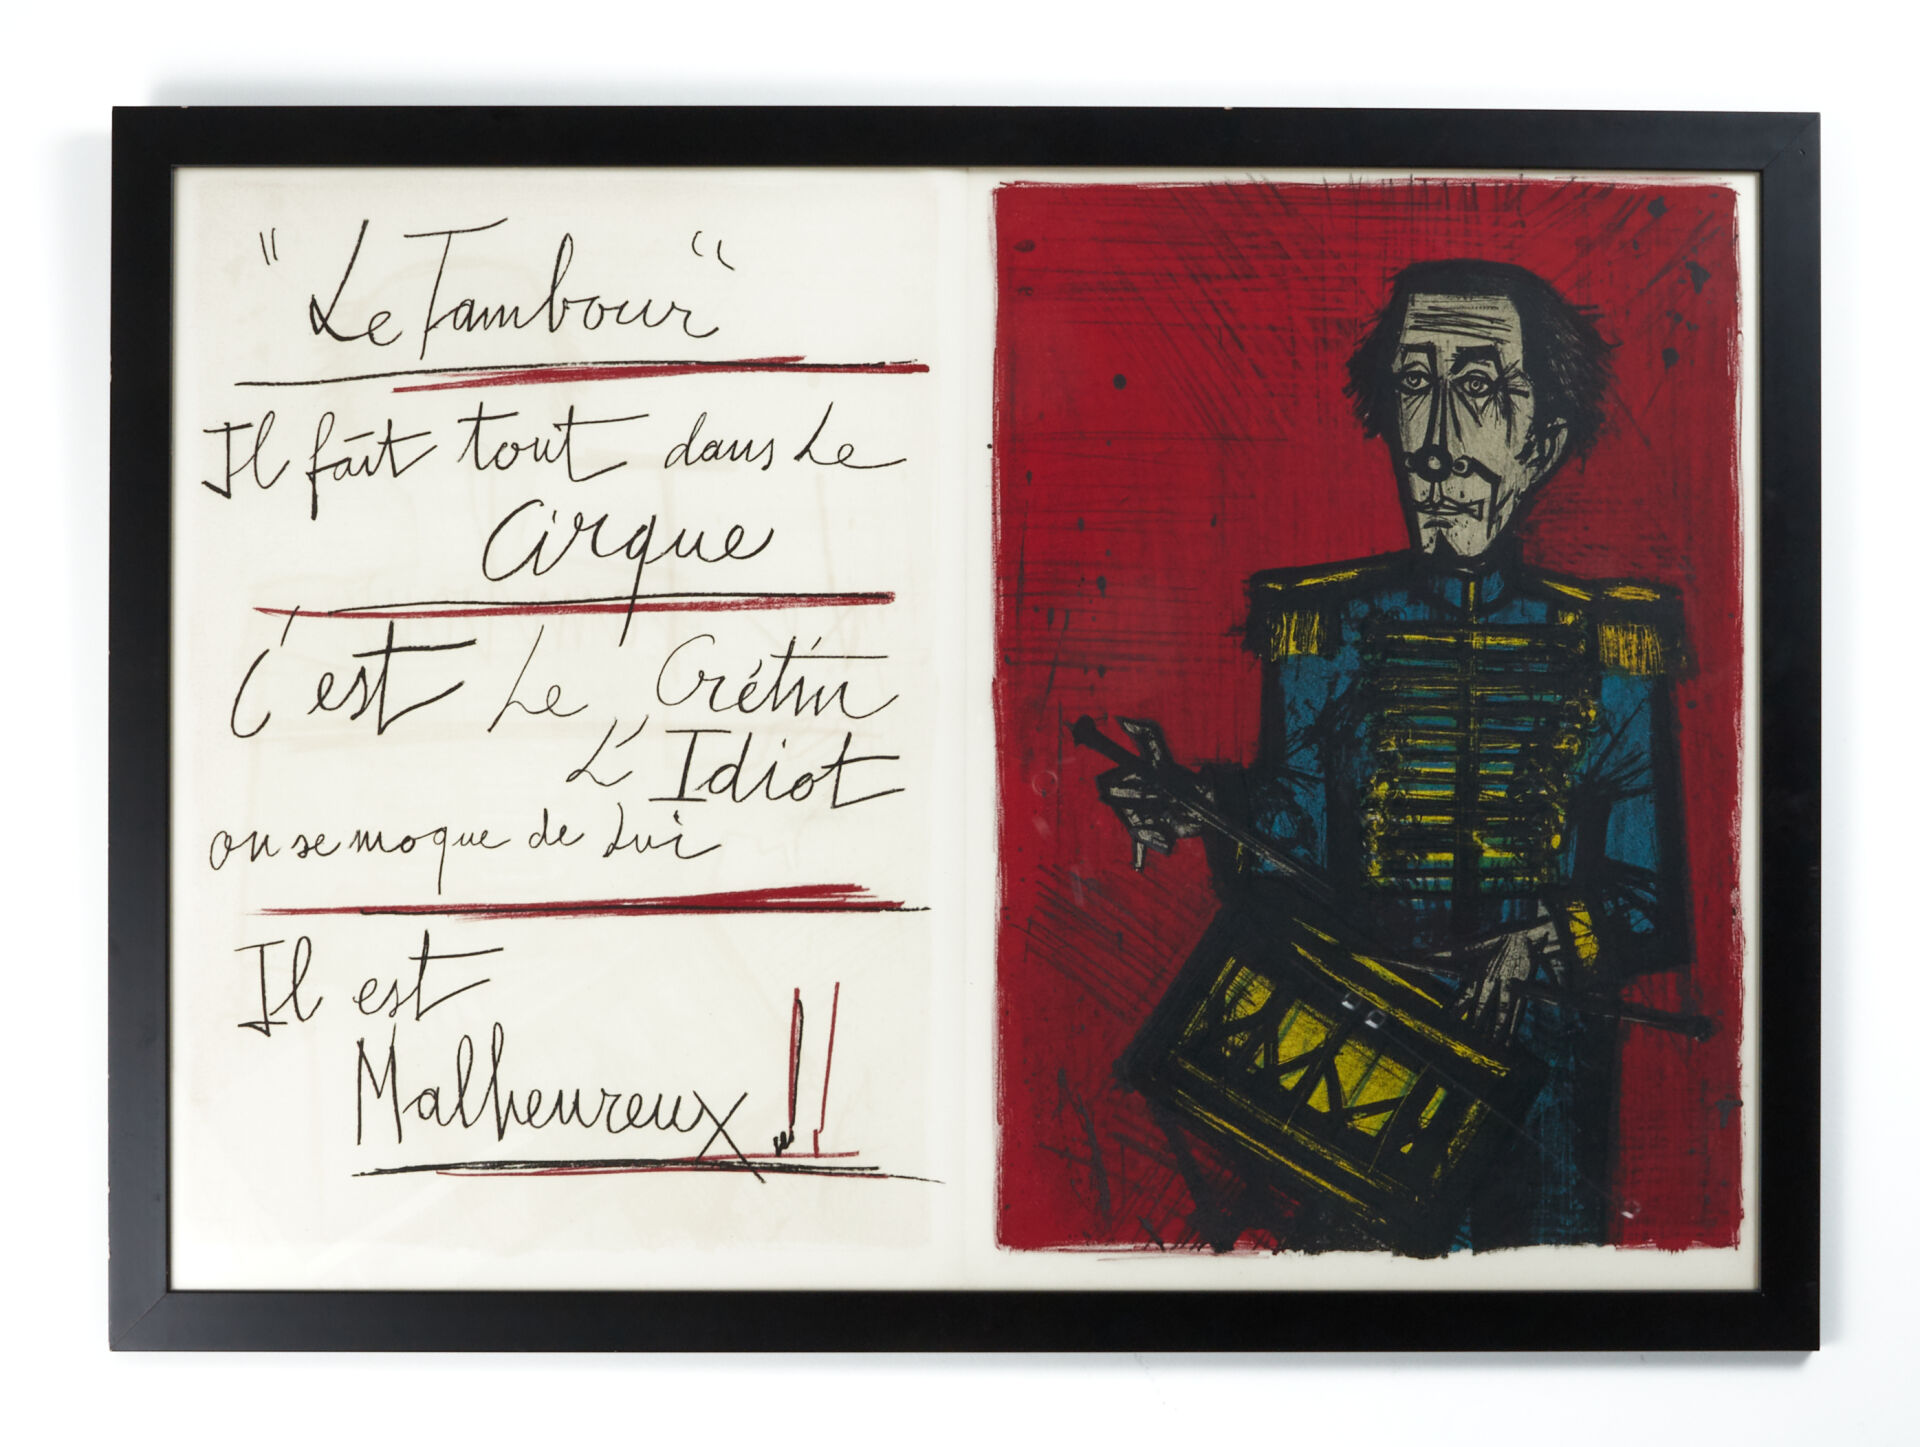 "Le Tambour"
Il fait tout dans Le
Cirque
C'est Le Crétin
L'Idiot
on se moque de Lui
Il est
Malheureux !!